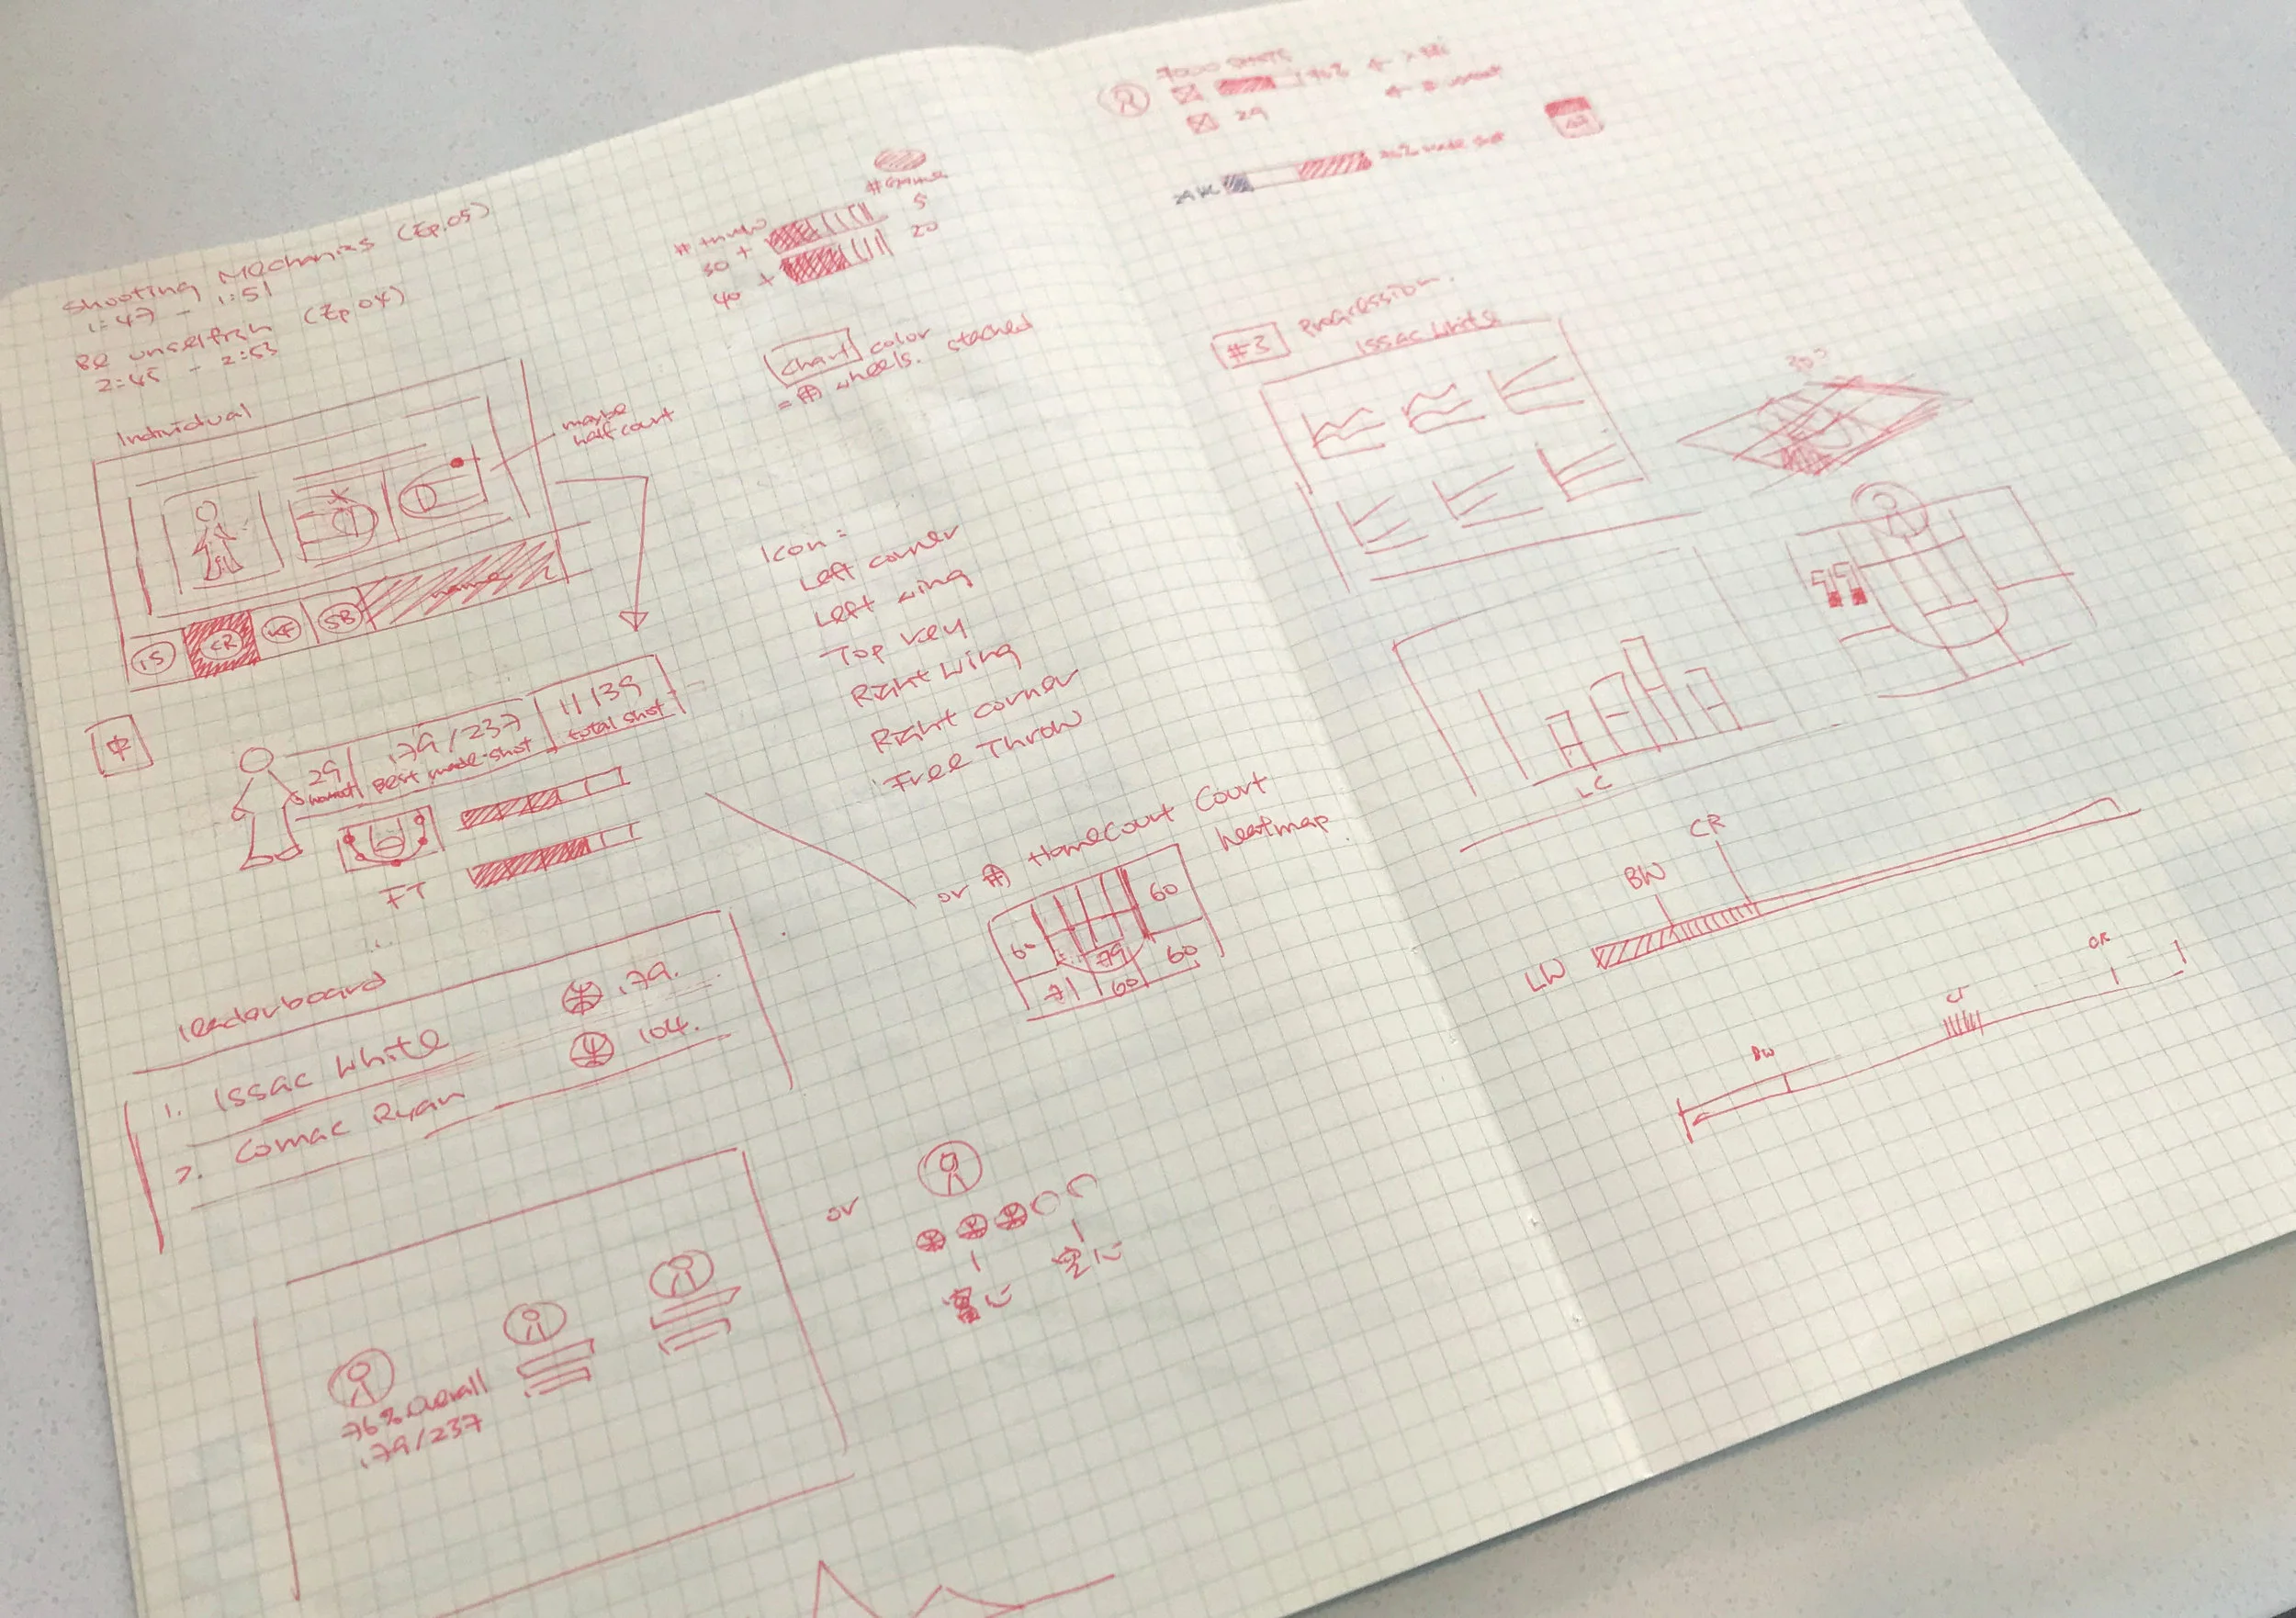 Shooting Mechanics (Ep.05)
1:47 - 1:51
Be unselfish (Ep 04)
2:45 - 2:53
Individual
maybe
half court
name
IS
CR
KF
SB
29
179/237
11139
Best made-shot
total shot
FT
leaderboard
1. Issac White
179.
2. Comac Ryan
104.
76% overall
179/237
# Game
# throw
30 +
5
40 +
20
Chart color
= wheels. stacked
Icon:
Left corner
Left wing
Top key
Right Wing
Right corner
Free Throw
or HomeCourt Court
heatmap
60
60
79
71
60
60
or
29
#3
Progression.
Issac White
3D?
LC
CR
BW
LW
BW
CR